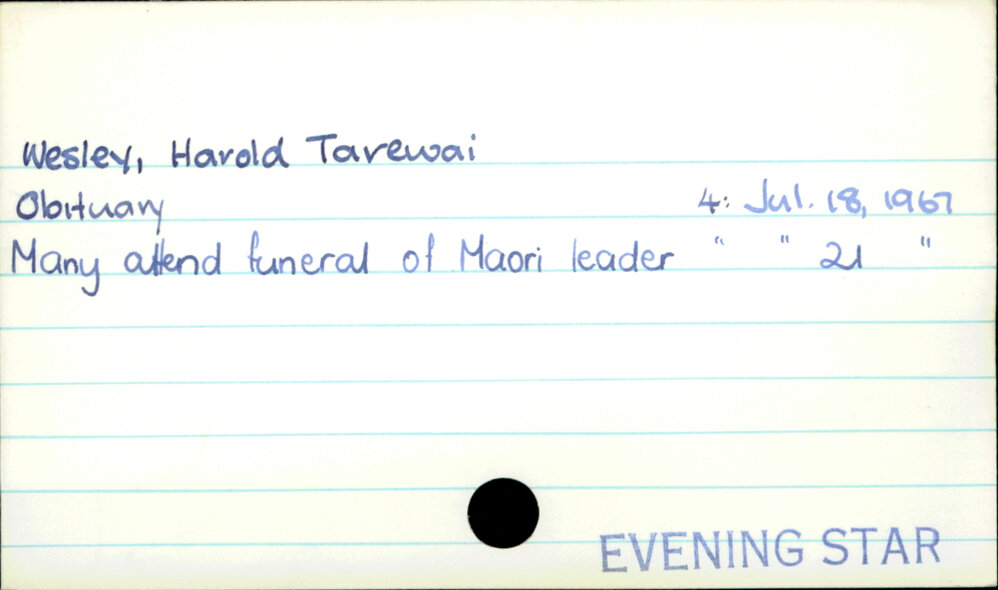 Wesley, Harold Tarewai
Obituary 4: Jul. 18, 1967
Many attend funeral of Maori leader " " 21 "
EVENING STAR